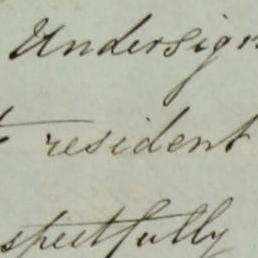 Undersign
t resident
spectfully